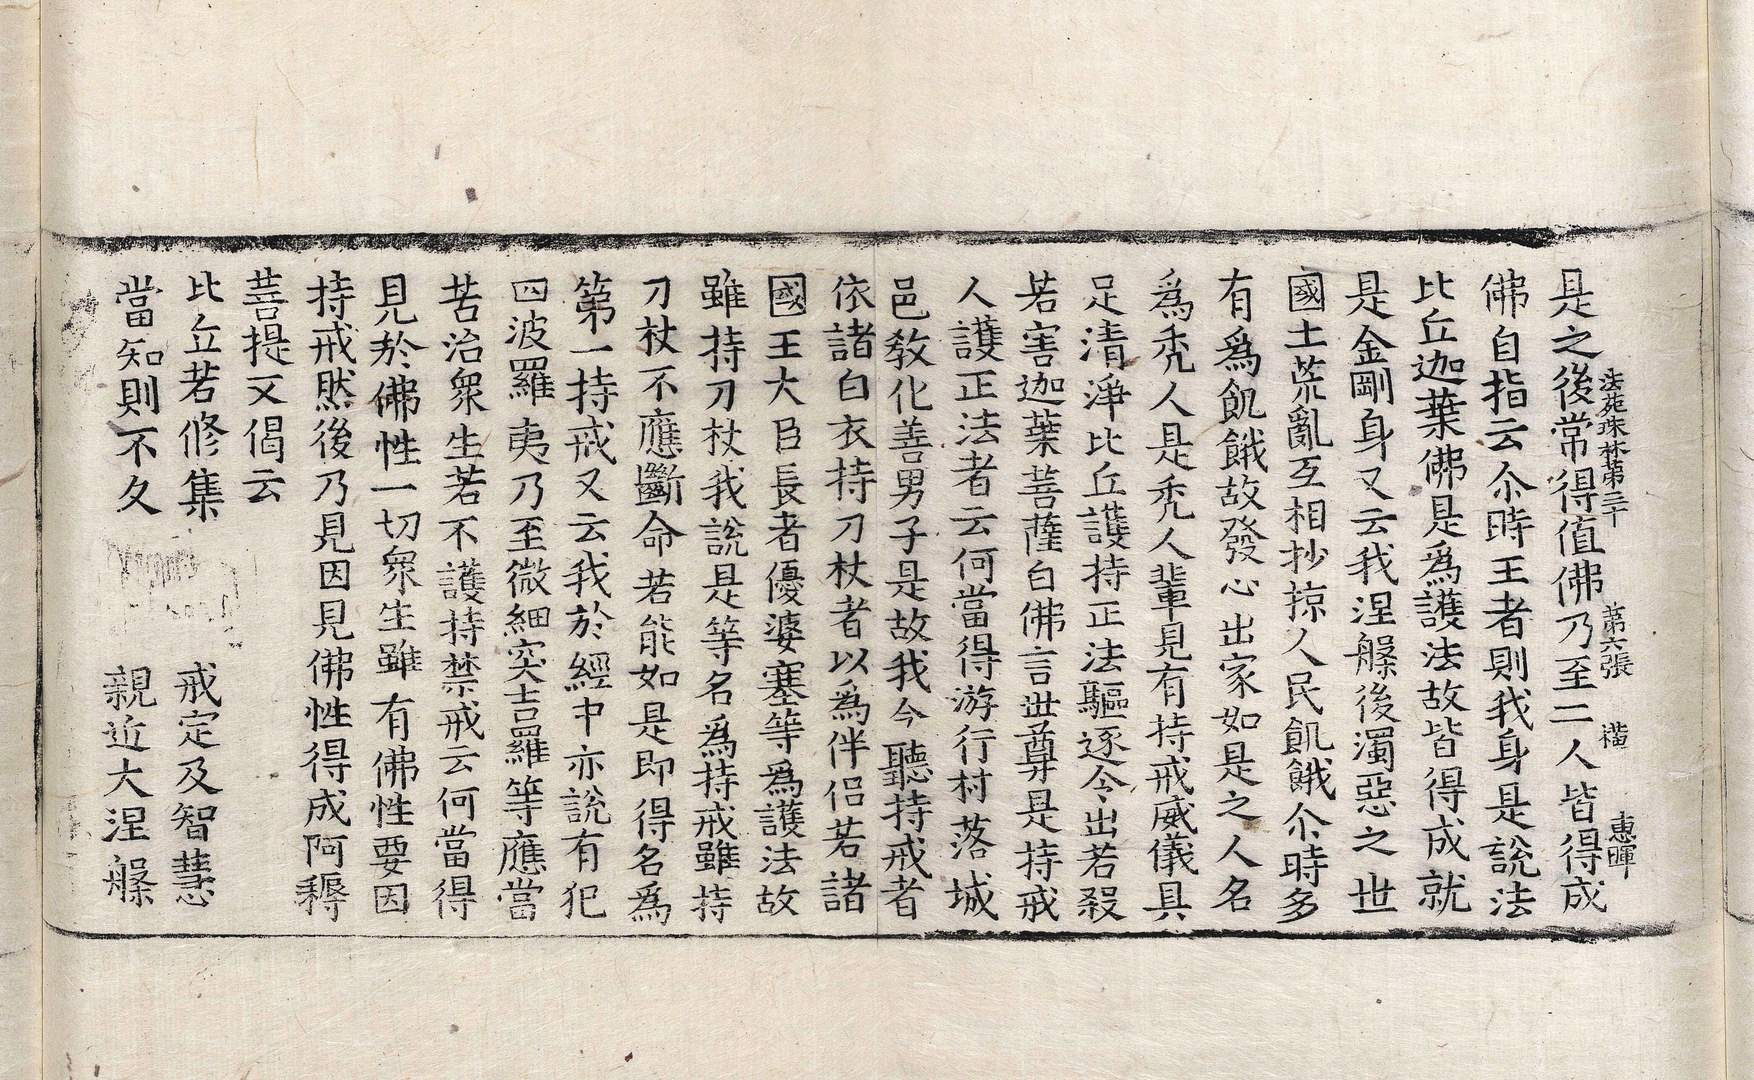 法苑珠林第三十　第六張　橫　惠暉
是之後常得值佛乃至二人皆得成
佛自指云尒時王者則我身是說法
比丘迦葉佛是爲護法故皆得成就
是金剛身又云我涅槃後濁惡之世
國土荒亂互相抄掠人民飢餓尒時多
有爲飢餓故發心出家如是之人名
爲禿人是禿人輩見有持戒威儀具
足清淨比丘護持正法驅逐令出若殺
若害迦葉菩薩白佛言世尊是持戒
人護正法者云何當得游行村落城
邑教化善男子是故我今聽持戒者
依諸白衣持刀杖者以爲伴侶若諸
國王大臣長者優婆塞等爲護法故
雖持刀杖我說是等名爲持戒雖持
刀杖不應斷命若能如是即得名爲
第一持戒又云我於經中亦說有犯
四波羅夷乃至微細突吉羅等應當
苦治衆生若不護持禁戒云何當得
見於佛性一切衆生雖有佛性要因
持戒然後乃見因見佛性得成阿耨
菩提又偈云
比丘若修集　戒定及智慧
當知則不久　親近大涅槃